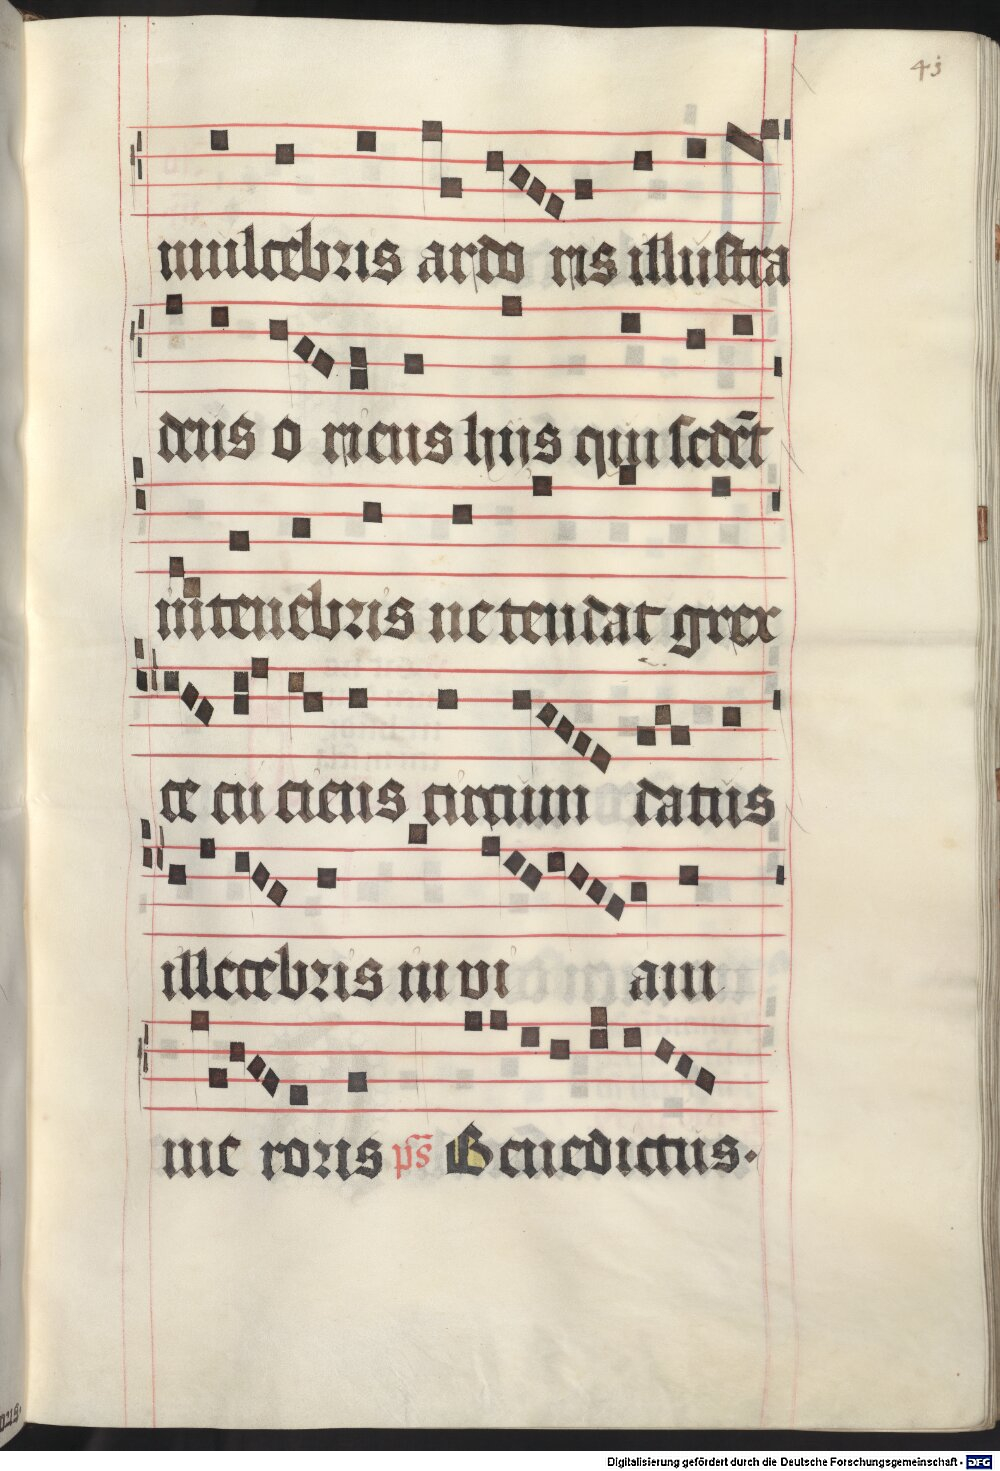 43
mulcebris ardo ris illustra
deus o riens hijs qui sedēt
in tenebris ne tendat grex
ce cu ciens circum datus
illecebris in vi am
me roris ps̄ Benedictus.
Digitalisierung gefördert durch die Deutsche Forschungsgemeinschaft - DFG